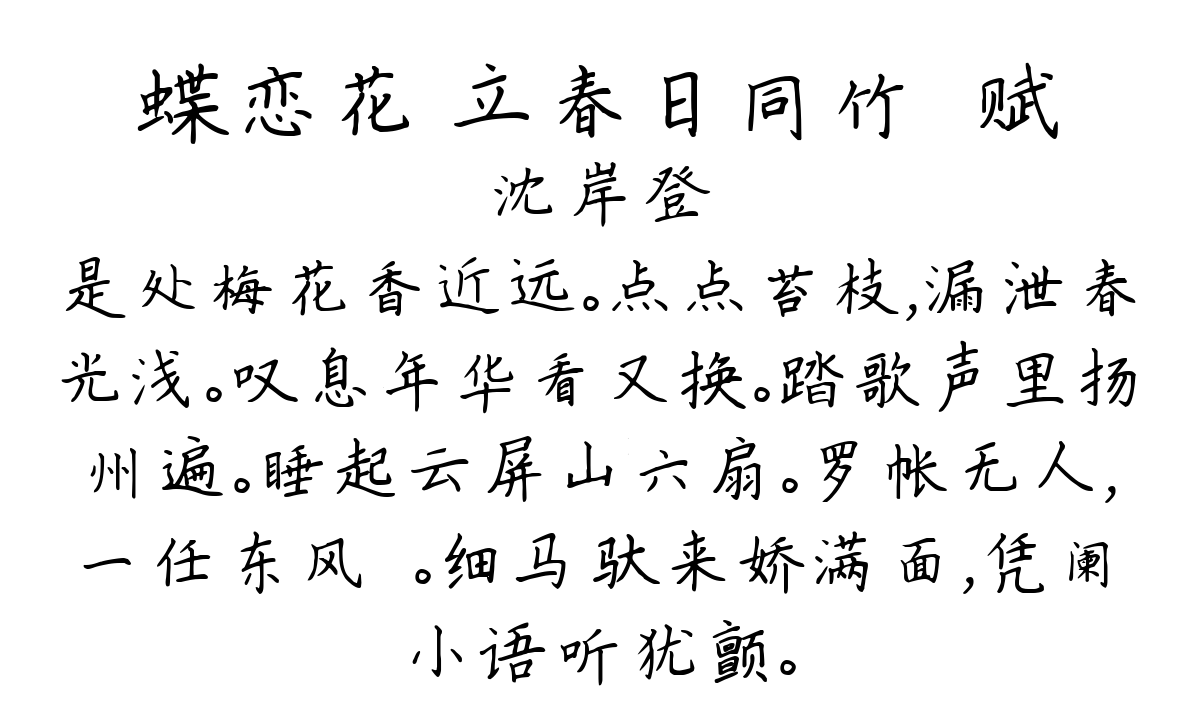 蝶恋花 立春日同竹 赋
沈岸登
是处梅花香近远。点点苔枝,漏泄春
光浅。叹息年华看又换。踏歌声里扬
州遍。睡起云屏山六扇。罗帐无人,
一任东风 。细马驮来娇满面,凭阑
小语听犹颤。